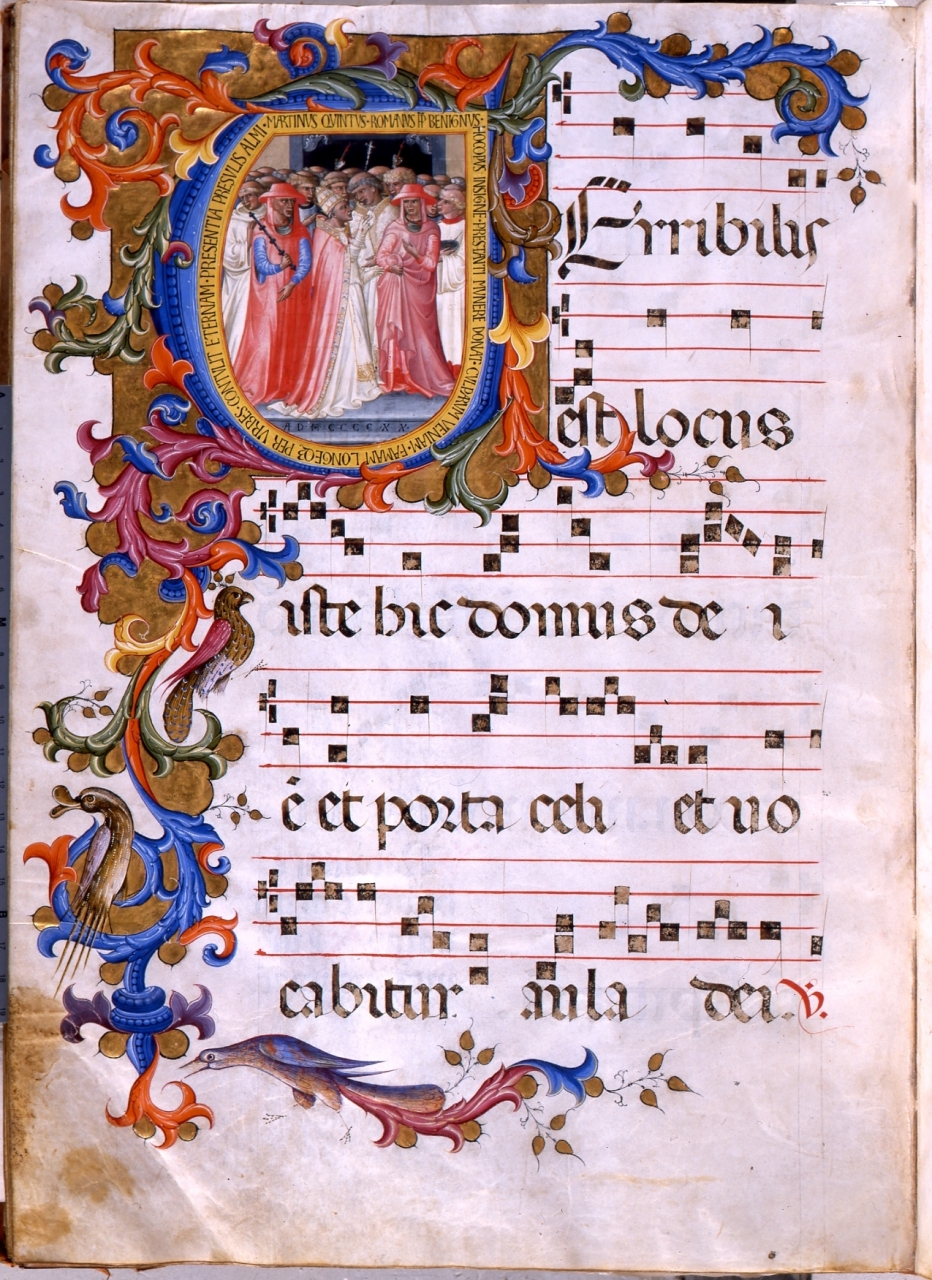 MARTINVS·QVINTVS·ROMANVS·PP·BENIGNVS·
HOCOPVS·INSIGNE·PRESTANTI·MVNERE·DONAT·CVLPARVM·VENIAM·FAMAM·LONGEQZ·PER·VRBES·CONTVLIT·ETERNAM·PRESENTIA·PRESVLIS·ALMI·
A D M C C C C X X
Erribilis
est locus
iste hic domus de i
é et porta celi et uo
cabitur aula dei. V.